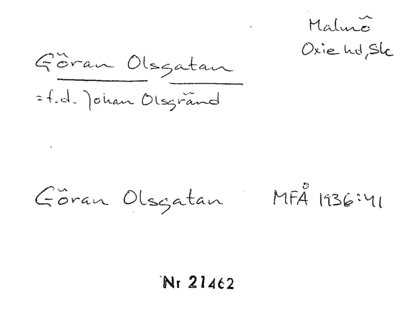 Malmö
Oxie hd, Sk
Göran Olsgatan
= f.d. Johan Olsgränd
Göran Olsgatan MFÅ 1936:41
Nr 21462